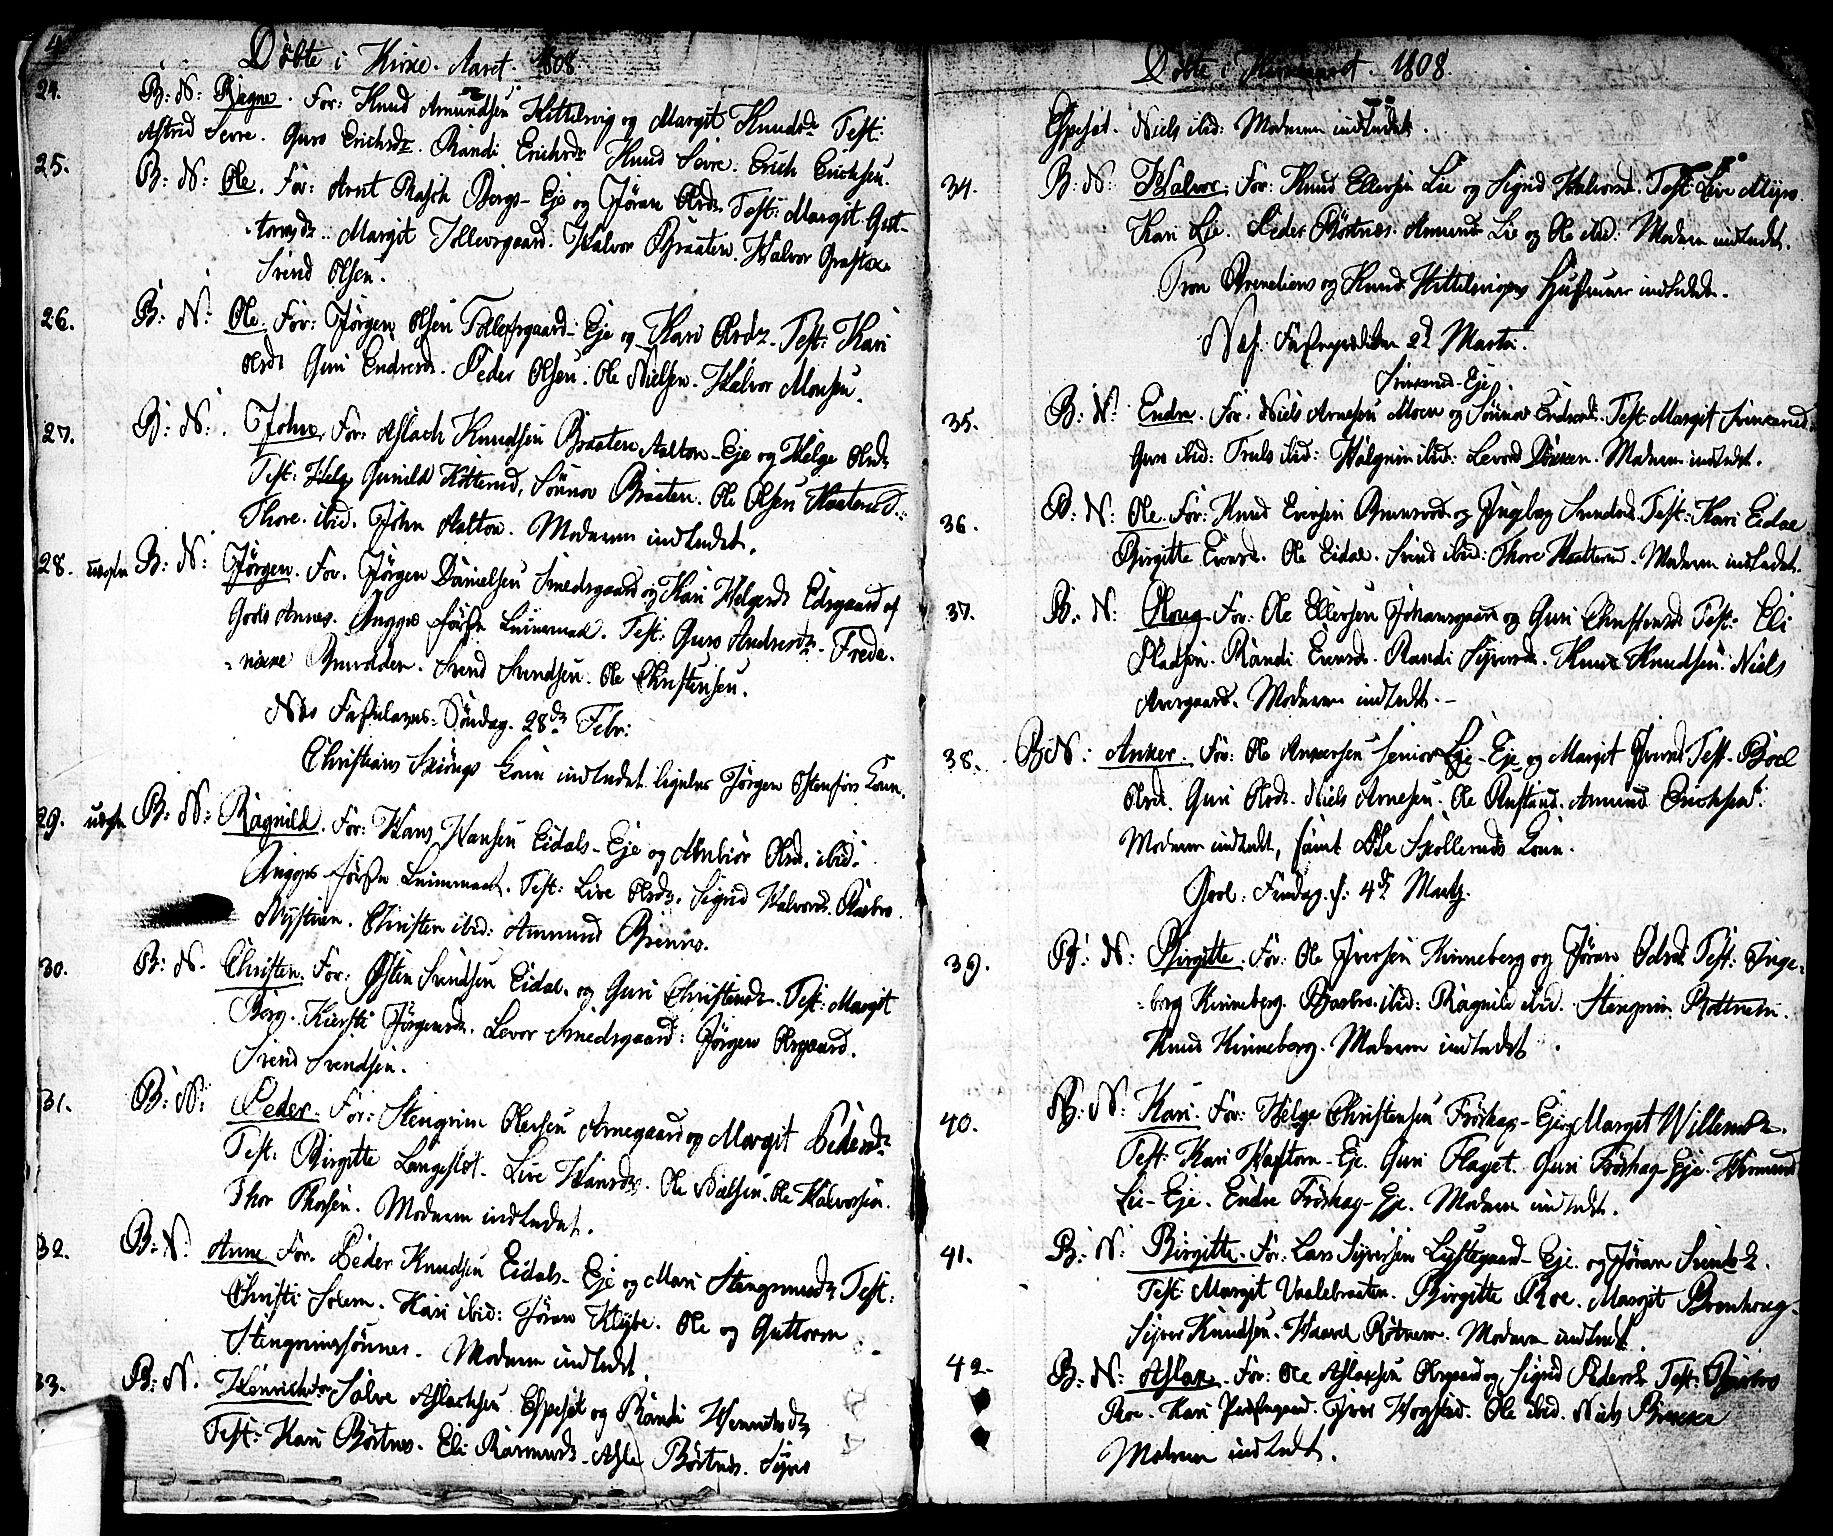 Döbte i Kirke. Aaret. 1808
24. B: N: Bægne. For: Knud Amundsen Kittelsvig og Margit Knudsdr Test:
Astrid Sevre. Guro Erichsdr. Randi Erichsdr Knud Sevre. Erich Erichsen.
25. B: N: Ole. For: Arnt Rasch Bergs-Eje og Jöran Olsdr. Test: Margit Gut-
tormsdr. Margit Tollevsgaard. Halvor Braaten. Halvor
Svend Olsen.
26. B: N: Ole. For: Jörgen Olsen Tollefsgaard-Eje og Kari Olsdr. Test: Kari
Olsdr Guri Endresdr. Peder Olsen. Ole Nielsen. Halvor Monsen.
27. B: N: John. For: Aslach Knudsen Braaten Aalton-Eje og Helge Olsdr
Test: Helge Gunild Kitterud, Sönnov Braaten. Ole Olsen Haaterud.
Thore ibid. John Aalton. Moderen indledet.
28. uægte B: N: Jörgen. For. Jörgen Danielsen Smedsgaard og Kari Helgesdr Edsgaard af
Gods Annes. Begges förste Leiermaal. Test: Guro Andresdr. Frede-
rikke. Svend Svendsen. Ole Christensen.
Næs Fastelavns-Söndag. 28de Febr:
Christians Skiöngs Kone indledet ligeledes Jörgen Kone.
29. uægte B: N: Ragnild. For: Hans Hansen Eidals-Eje og Olsd. ibid:
Begges förste Leiermaal. Test: Live Olsdr. Sigrid Halvorsd. Barbro
Christen ibid: Amund
30. B: N. Christen. For: Östen Svendsen Eidal. og Guri Christensdr. Test: Margit
Berg. Kiersti Jörgensdr. Levor Smedsgaard: Jörgen Olsgaard.
Svend Svendsen.
31. B: N: Peder. For: Stengrim Olersen Arnegaard og Margit Pedersdr
Test: Birgitte Langeslet. Live Hansdr. Ole Nielsen. Ole Halvorsen.
Thor Thorsen. Moderen indledet.
32. B: N. Anne For. Peder Knudsen Eidals-Eje og Mari Stengrimsdr Test:
Christi Solem. Kari ibid: Jöran Klype. Ole og Guttorm
Stengrimssönner. Moderen indledt.
33. B: N. Henrich. Solve Aslachsen Espeset og Randi Henrichsdr
Test: Kari Börtnes. Eli Rasmusdr. Asle Börtnes. Syver
Döbte i Kirkeaaret. 1808.
Espeset. Niels ibid: Moderen indledet.
34. B: N: Halvor. For: Knud Ellevsen Lie og Sigrid Halvorsd. Test: Live Myro.
Kari Lie. Peder Börtnes. Amund Lie og Ole ibid: Moderen indledet.
Iver og Knud Kittelsvigens Hustruer indledet.
Næs. Fasteprediken 2d Martii.
Svenkerud-Eje.
35. B: N: Endre. For: Niels Arnesen Moen og Sönnov Endresd. Test Margit Svenkerud
Guro ibid: Truls ibid: Halgrim ibid: Levord Dökken. Moderen indledet.
36. B: N: Ole. For: Knud Evensen og Ingebor Svendsd. Test: Kari Eidal
Birgitte Evensd. Ole Eidal. Svend ibid: Thore Haatterud. Moderen indledet.
37. B: N: Oloug For: Ole Ellevsen Johansgaard og Guri Christensd Test: Eli
Pladsen. Randi Evensd. Randi Syversd. Knud Knudsen. Niels
Arnegaard. Moderen indledt.-
38. B: N: Anker. For: Ole Ankersen senior Lie-Eje og Margit Iversd Test. Boel
Olsd. Guri Olsdr. Niels Arnesen. Ole Rustand. Amund Erichsen.
Moderen indledt, samt Ole Skollerud's Kone.
Gool. Fredag. d: 4de Martz.
39. B: N: Birgitte. For: Ole Iversen Kinneberg og Jöran Olsd. Test: Inge-
borg Kinneberg. Barbro ibid: Ragnild ibid. Stengrim Rotneim.
Knud Kinneberg. Moderen indledet.
40. B: N: Kari. For: Helge Christensen Fröshag-Eje og Margit Willemsdr.
Test: Kari Haftorn-Eje. Guri Flaget. Guri Fröshag-Eje. Hermund
Lie-Eje. Endre Fröshag-Eje. Moderen indledt.
41. B: N: Birgitte. For: Lars Syversen Lystegaard-Eje. og Jöran Svendsdr.
Test: Margit Vaalebraaten. Birgitte Roe. Margit Bronhoug.
Syver Knudsen. Haavel Rotneim. Moderen indledt.
42. B: N: Aslak. For: Ole Aslaksen Olsgaard og Sigrid Pedersdr. Test: Barbro
Roe. Kari Iver Hogstad. Ole ibid. Niels
Moderen indledt.